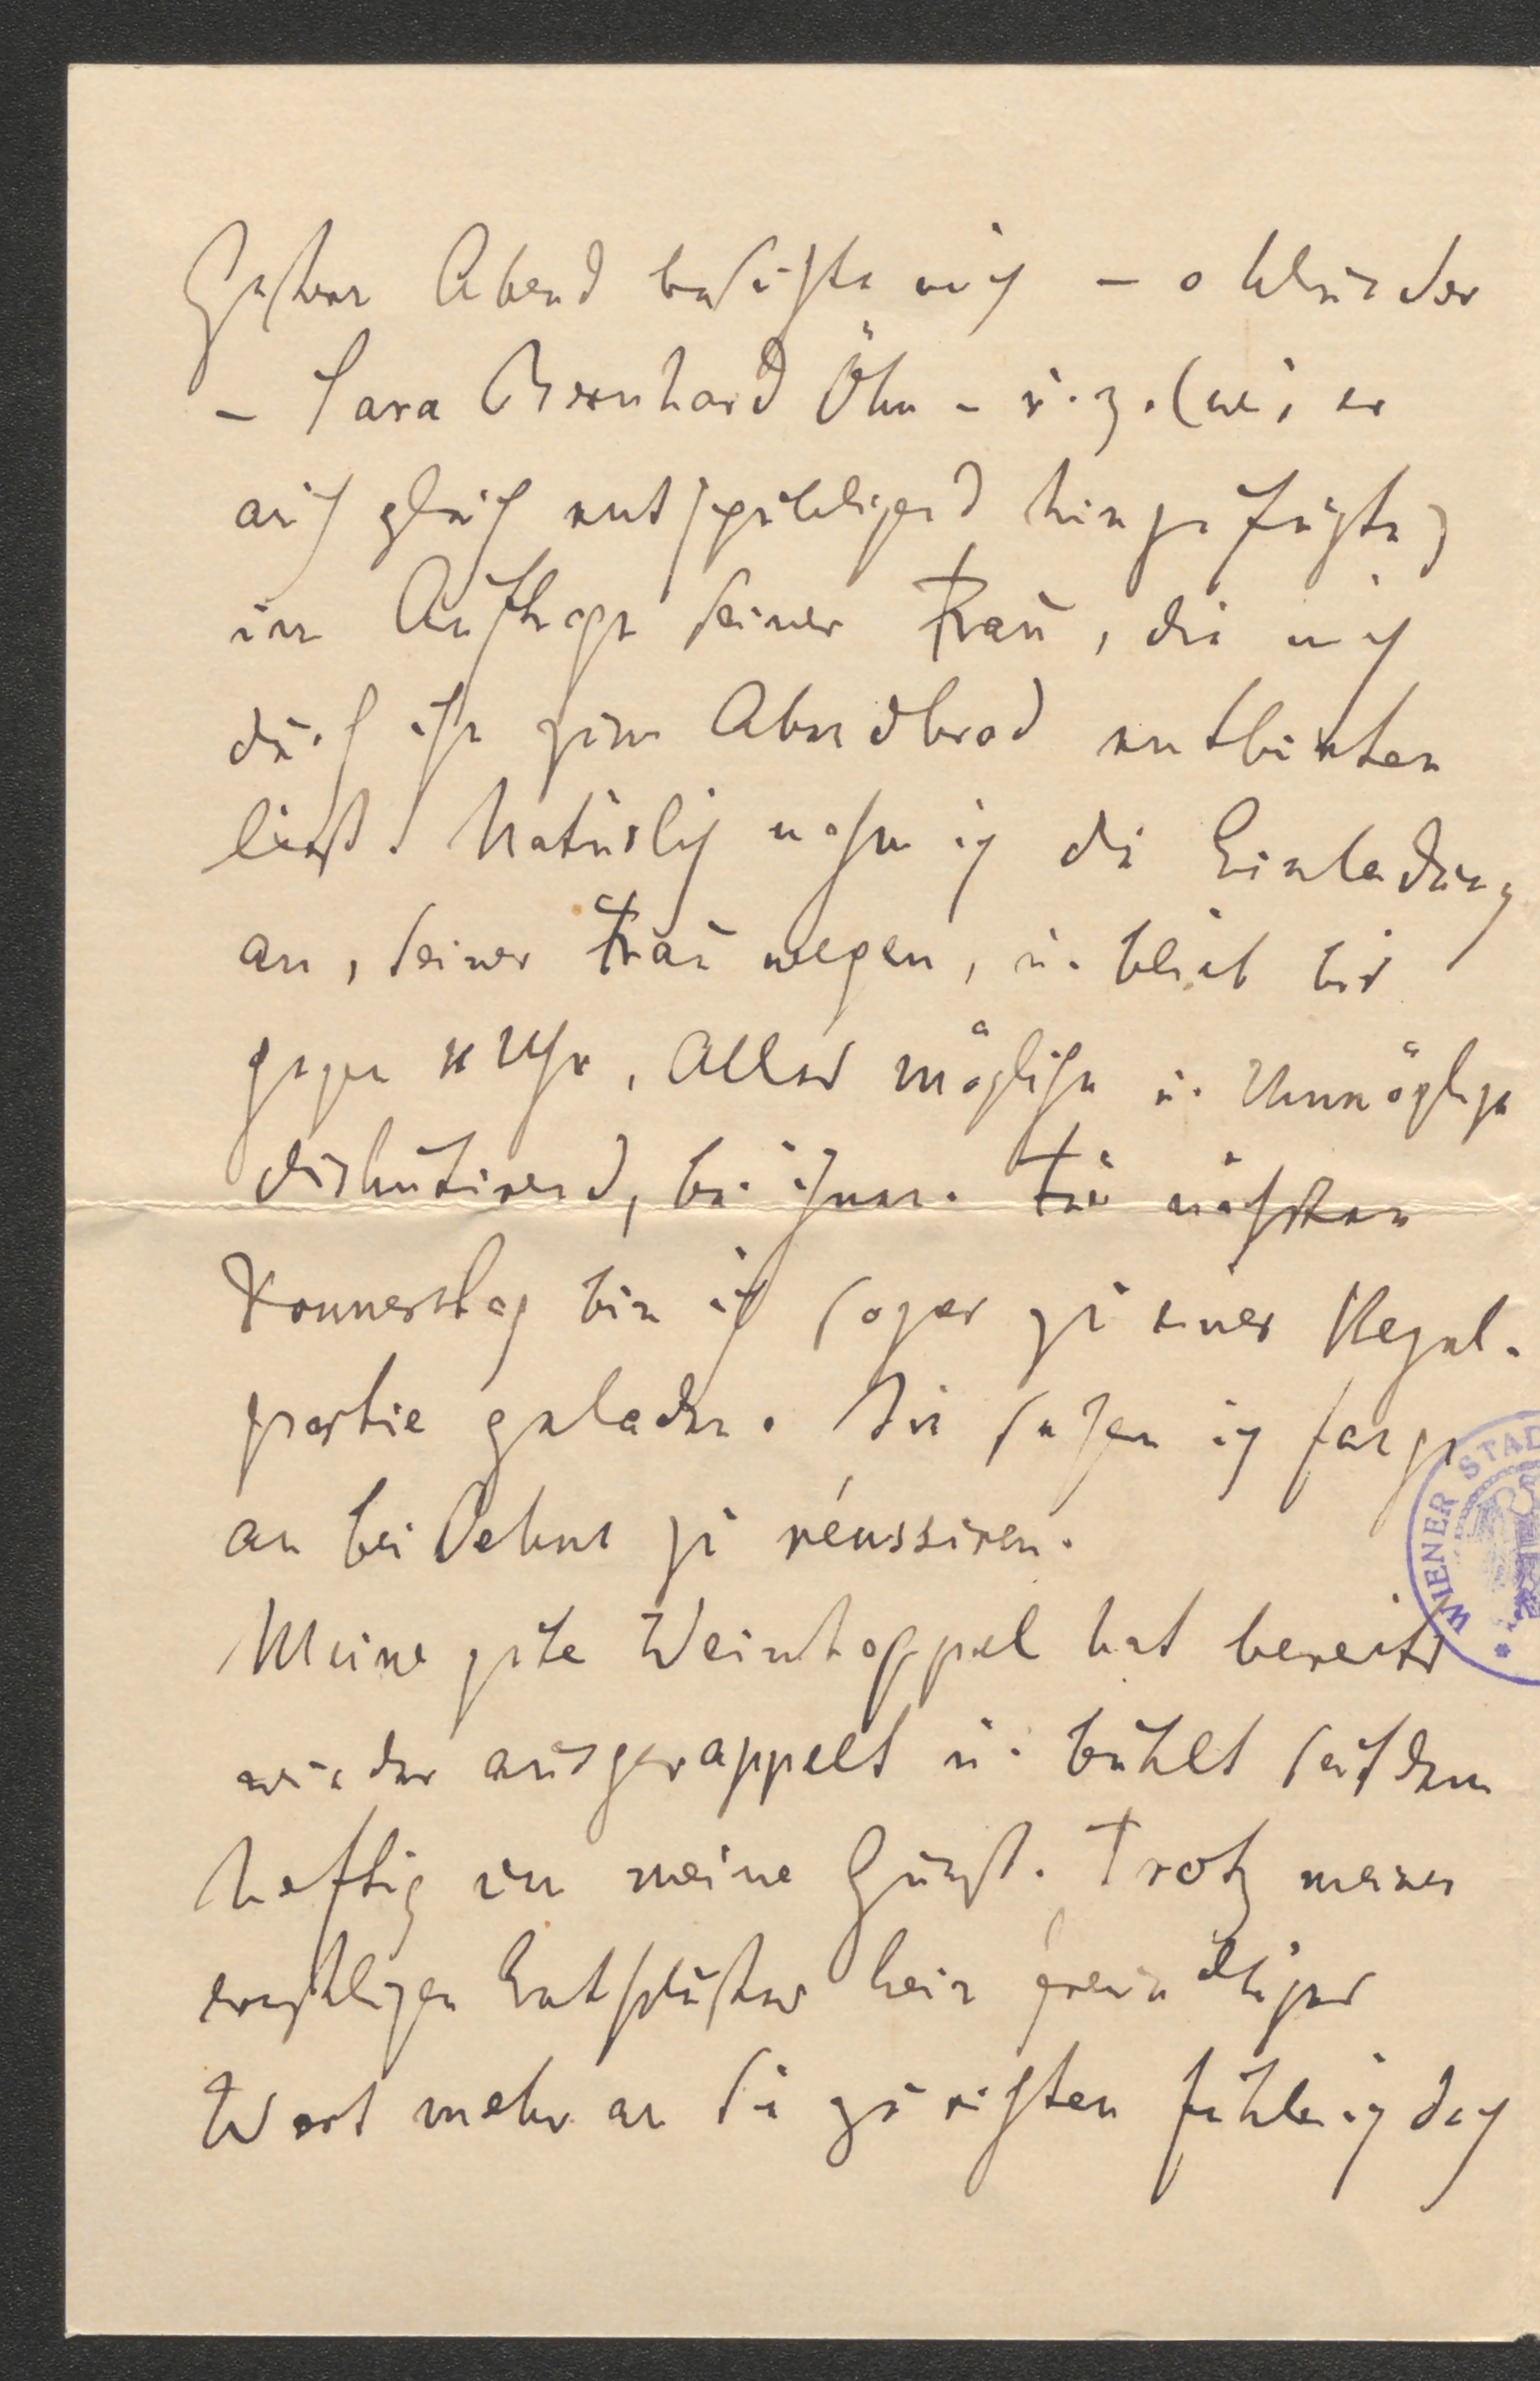 Gestern Abend besuchte mich – o Wunder
– Sara Bernhard Öhn – u. z. (wie er
auch gleich entschuldigend hinzufügte)
im Auftrage seiner Frau, die mich
durch ihn zum Abendbrod entbieten
ließ. Natürlich nahm ich die Einladung
an, seiner Frau wegen, u. blieb bis
gegen Uhr, Alles mögliche u. Unmögliche
diskutirend, bei ihnen. Für nächsten
Donnerstag bin ich sogar zu einer Kegel-
partie geladen. Sie sehen ich fange
an bei Oehns zu réussiren.
Meine gute Weinhoppel hat bereits
wieder ausgerappelt u. buhlt seitdem
heftig um meine Gunst. Trotz meines
ernstlichen Entschlusses kein freundliches
Wort mehr an sie zu richten fühle ich doch
WIENER STAD